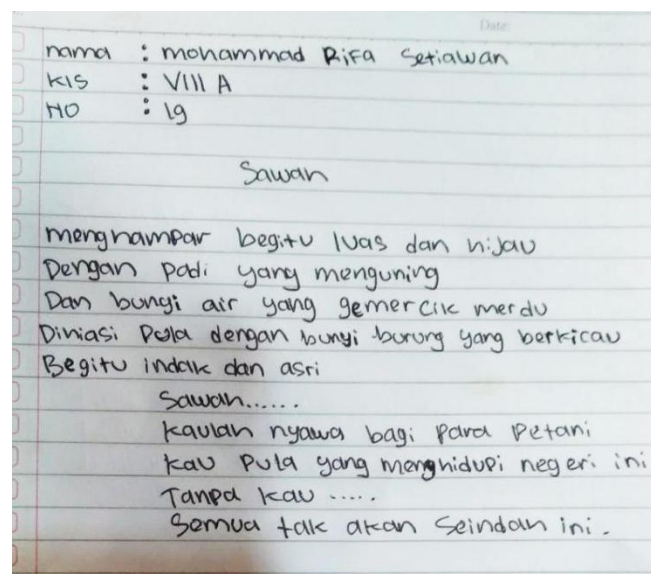 Date:
nama : mohammad Rifa Setiawan
Kls : VIII A
NO : 19
Sawah
menghampar begitu luas dan hijau
Dengan padi yang menguning
Dan bunyi air yang gemercik merdu
Dihiasi Pula dengan bunyi burung yang berkicau
Begitu indah dan asri
Sawah......
Kaulah nyawa bagi para Petani
Kau Pula yang menghidupi negeri ini
Tanpa kau .....
Semua tak akan Seindah ini.